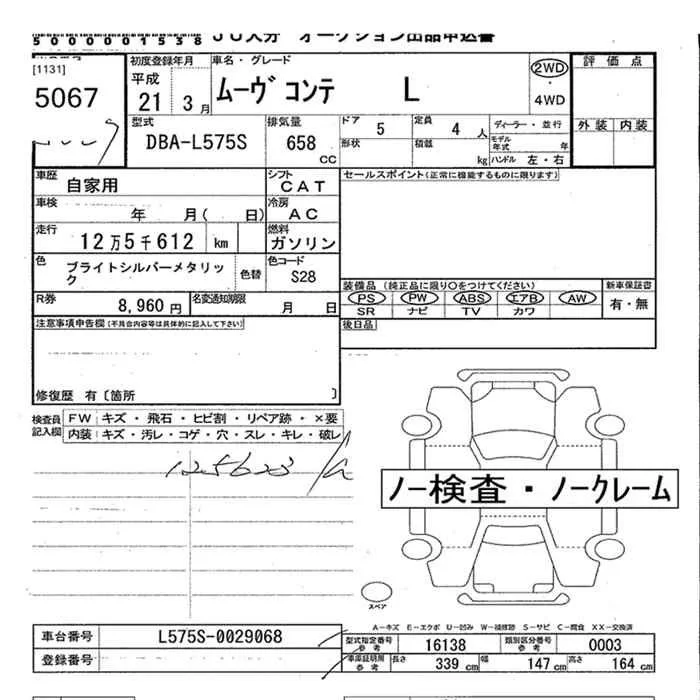 500000001538 JU大分 オークション出品申込書
[1131]
5067
初度登録年月
平成
21 3月
車名・グレード
ムーヴ コンテ L
2WD
・
4WD
評価点
外装 内装
型式
DBA-L575S
排気量
658
CC
ドア 5
定員 4 人
形状
積載 kg
ディーラー・並行
モデル年式 年
ハンドル 左・右
車歴 自家用
シフト CAT
セールスポイント(正常に機能するものに限ります)
車検 年 月( 日)
冷房 AC
走行 12万5千612 km
燃料 ガソリン
色 ブライトシルバーメタリック
色替
色コード S28
装備品(純正品に限り○をつけてください)
新車保証書
PS PW ABS エアB AW
SR ナビ TV カワ
有・無
R券 8,960円
名変通知期限 月 日
後日品
注意事項申告欄(不具合内容等は具体的に記入して下さい)
修復歴 有〔箇所 〕
検査員記入欄
FW キズ・飛石・ヒビ割・リペア跡・×要
内装 キズ・汚レ・コゲ・穴・スレ・キレ・破レ
125623
ノー検査・ノークレーム
スペア
A-キズ E-エクボ U-凹み W-補修跡 S-サビ C-腐食 XX-交換済
車台番号 L575S-0029068
登録番号
型式指定番号 参考 16138
類別区分番号 参考 0003
車庫証明用 参考 長さ 339 cm 幅 147 cm 高さ 164 cm